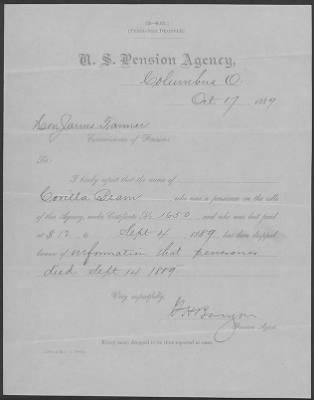 U. S. Pension Agency,
Columbus O.
Oct 17 1889
Hon James Tanner
Commissioner of Pensions
Sir:
I hereby report that the name of
Corilla Beam who was a pensioner on the rolls
of this Agency, under Certificate No. 1650, and who was last paid
at $12, to Sept 4, 1889, has been dropped
because of information that pensioner
died Sept 14 1889
Very respectfully,
Pension Agent.
Every name dropped to be thus reported at once.